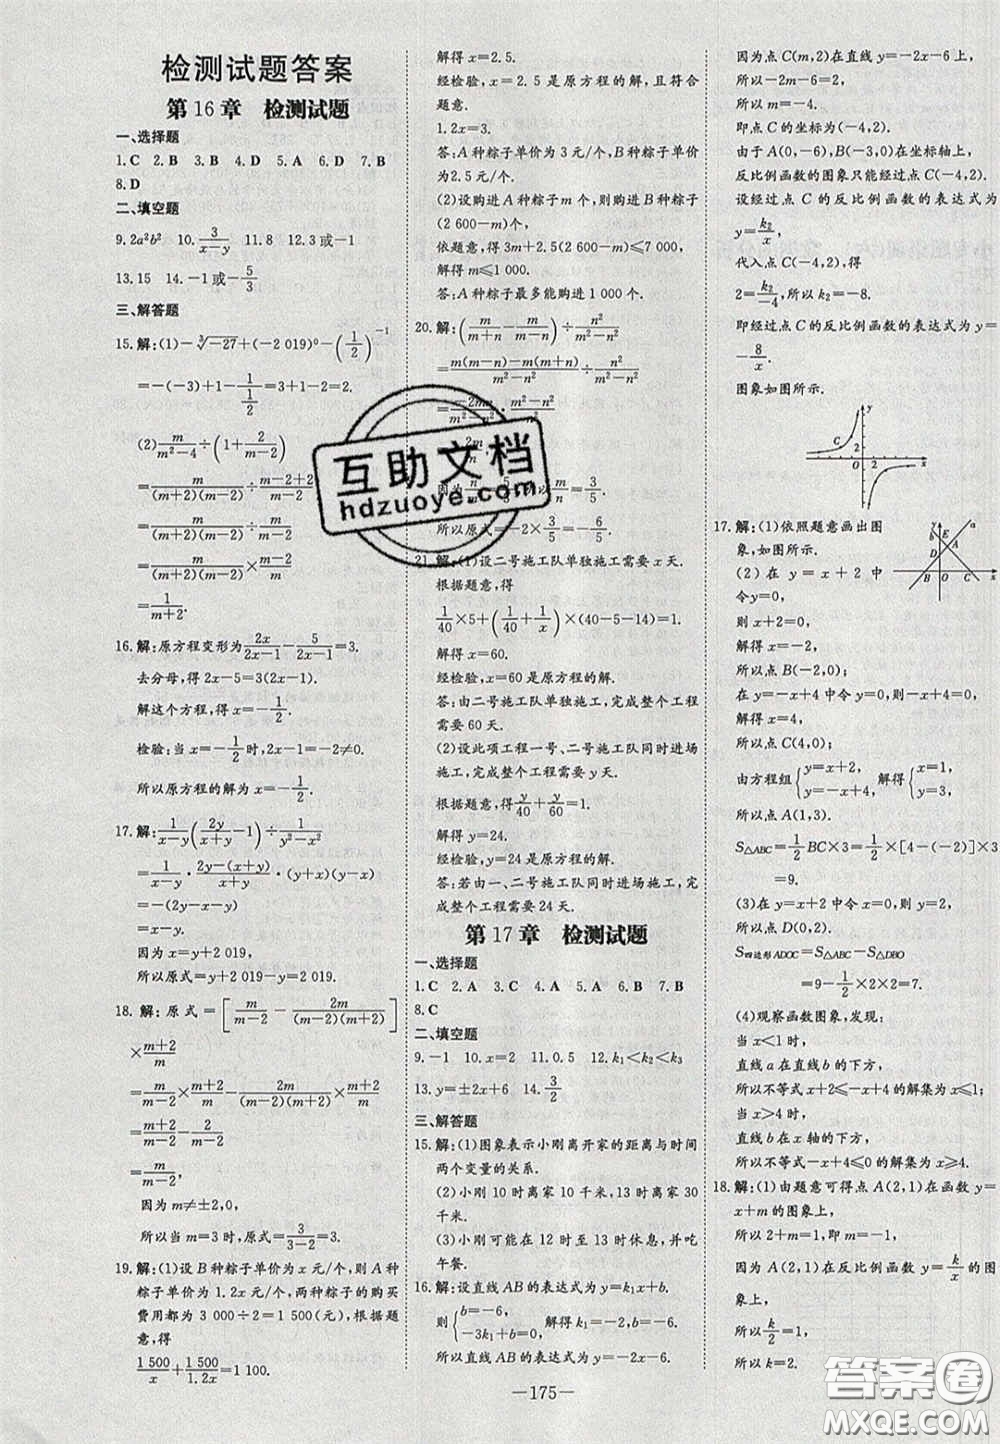 检测试题答案
第16章 检测试题
一、选择题
1.C 2.B 3.B 4.D 5.A 6.D 7.B
8.D
二、填空题
9.2a²b² 10.3/(x-y) 11.8 12.3或-1
13.15 14.-1或-5/3
三、解答题
15.解:(1)-∛-27+(-2 019)⁰-(1/2)⁻¹
=-(-3)+1-1/(1/2)=3+1-2=2.
(2)m/(m²-4)÷(1+2/(m-2))
=m/((m+2)(m-2))÷(m-2+2)/(m-2)
=m/((m+2)(m-2))×(m-2)/m
=1/(m+2).
16.解:原方程变形为2x/(2x-1)-5/(2x-1)=3.
去分母,得2x-5=3(2x-1).
解这个方程,得x=-1/2.
检验:当x=-1/2时,2x-1=-2≠0.
所以原方程的解为x=-1/2.
17.解:1/(x-y)(2y/(x+y)-1)÷1/(y²-x²)
=1/(x-y)·(2y-(x+y))/(x+y)·(y+x)(y-x)
=-(2y-x-y)
=x-y.
因为x=y+2 019,
所以原式=y+2 019-y=2 019.
18.解:原式=[m/(m-2)-2m/((m-2)(m+2))]
×(m+2)/m
=m/(m-2)×(m+2)/m-2m/((m-2)(m+2))×(m+2)/m
=(m+2)/(m-2)-2/(m-2)
=m/(m-2).
因为m≠±2,0,
所以当m=3时,原式=3/(3-2)=3.
19.解:(1)设B种粽子单价为x元/个,则A种
粽子单价为1.2x元/个,两种粽子的购买
费用都为3 000÷2=1 500(元),根据题
意,得
1 500/x+1 500/1.2x=1 100.
解得x=2.5.
经检验,x=2.5是原方程的解,且符合
题意.
1.2x=3.
答:A种粽子单价为3元/个,B种粽子单价
为2.5元/个.
(2)设购进A种粽子m个,则购进B种粽子
(2 600-m)个,
依题意,得3m+2.5(2 600-m)≤7 000,
解得m≤1 000.
答:A种粽子最多能购进1 000个.
20.解:(m/(m+n)-m/(m-n))÷n²/(m²-n²)
=(m(m-n)-m(m+n))/(m²-n²)÷n²/(m²-n²)
=-2mn/(m²-n²)·(m²-n²)/n²
因为 所以m/n=3/5.
所以原式=-2×3/5=-6/5.
21.解:(1)设二号施工队单独施工需要x天.
根据题意,得
1/40×5+(1/40+1/x)×(40-5-14)=1.
解得x=60.
经检验,x=60是原方程的解.
答:由二号施工队单独施工,完成整个工程
需要60天.
(2)设此项工程一号、二号施工队同时进场
施工,完成整个工程需要y天.
根据题意,得y/40+y/60=1.
解得y=24.
经检验,y=24是原方程的解.
答:若由一、二号施工队同时进场施工,完
成整个工程需要24天.
第17章 检测试题
一、选择题
1.C 2.A 3.C 4.A 5.A 6.A 7.B
8.C
二、填空题
9.-1 10.x=2 11.0.5 12.k₁<k₂<k₃
13.y=±2x+6 14.3/2
三、解答题
15.解:(1)图象表示小刚离开家的距离与时间
两个变量的关系.
(2)小刚10时离家10千米,13时离家30
千米.
(3)小刚可能在12时至13时休息,并吃
午餐.
16.解:设直线AB的表达式为y=k₁x+b.
则{b=-6, -3k₁+b=0, 解得k₁=-2,b=-6.
所以直线AB的表达式为y=-2x-6.
因为点C(m,2)在直线y=-2x-6上,
所以-2m-6=2,
所以m=-4.
即点C的坐标为(-4,2).
由于A(0,-6),B(-3,0)在坐标轴上,
反比例函数的图象只能经过点C(-4,2).
设经过点C的反比例函数的表达式为
y=k₂/x.
代入点C(-4,2),得
2=k₂/-4,所以k₂=-8.
即经过点C的反比例函数的表达式为y=
-8/x.
图象如图所示.
C y 2 O 2 x
17.解:(1)依照题意画出图
象,如图所示.
y a E D A B O C x
(2)在y=x+2中
令y=0,
则x+2=0,
解得x=-2,
所以点B(-2,0);
在y=-x+4中令y=0,则-x+4=0,
解得x=4,
所以点C(4,0);
由方程组{y=x+2, y=-x+4, 解得{x=1, y=3,
所以点A(1,3).
S△ABC=1/2BC×3=1/2×[4-(-2)]×3
=9.
(3)在y=x+2中令x=0,则y=2,
所以点D(0,2).
S四边形ADOC=S△ABC-S△DBO
=9-1/2×2×2=7.
(4)观察函数图象,发现:
当x<1时,
直线a在直线b的下方,
所以不等式x+2≤-x+4的解集为x≤1.
当x>4时,
直线b在x轴的下方,
所以不等式-x+4≤0的解集为x≥4.
18.解:(1)由题意可得点A(2,1)在函数y=
x+m的图象上,
所以2+m=1,即m=-1,
因为A(2,1)在反比例函数y=k/x的图
象上,
所以k/2=1,
所以k=2.
—175—
互助文档
hdzuoye.com
答案圈
MXQE.COM